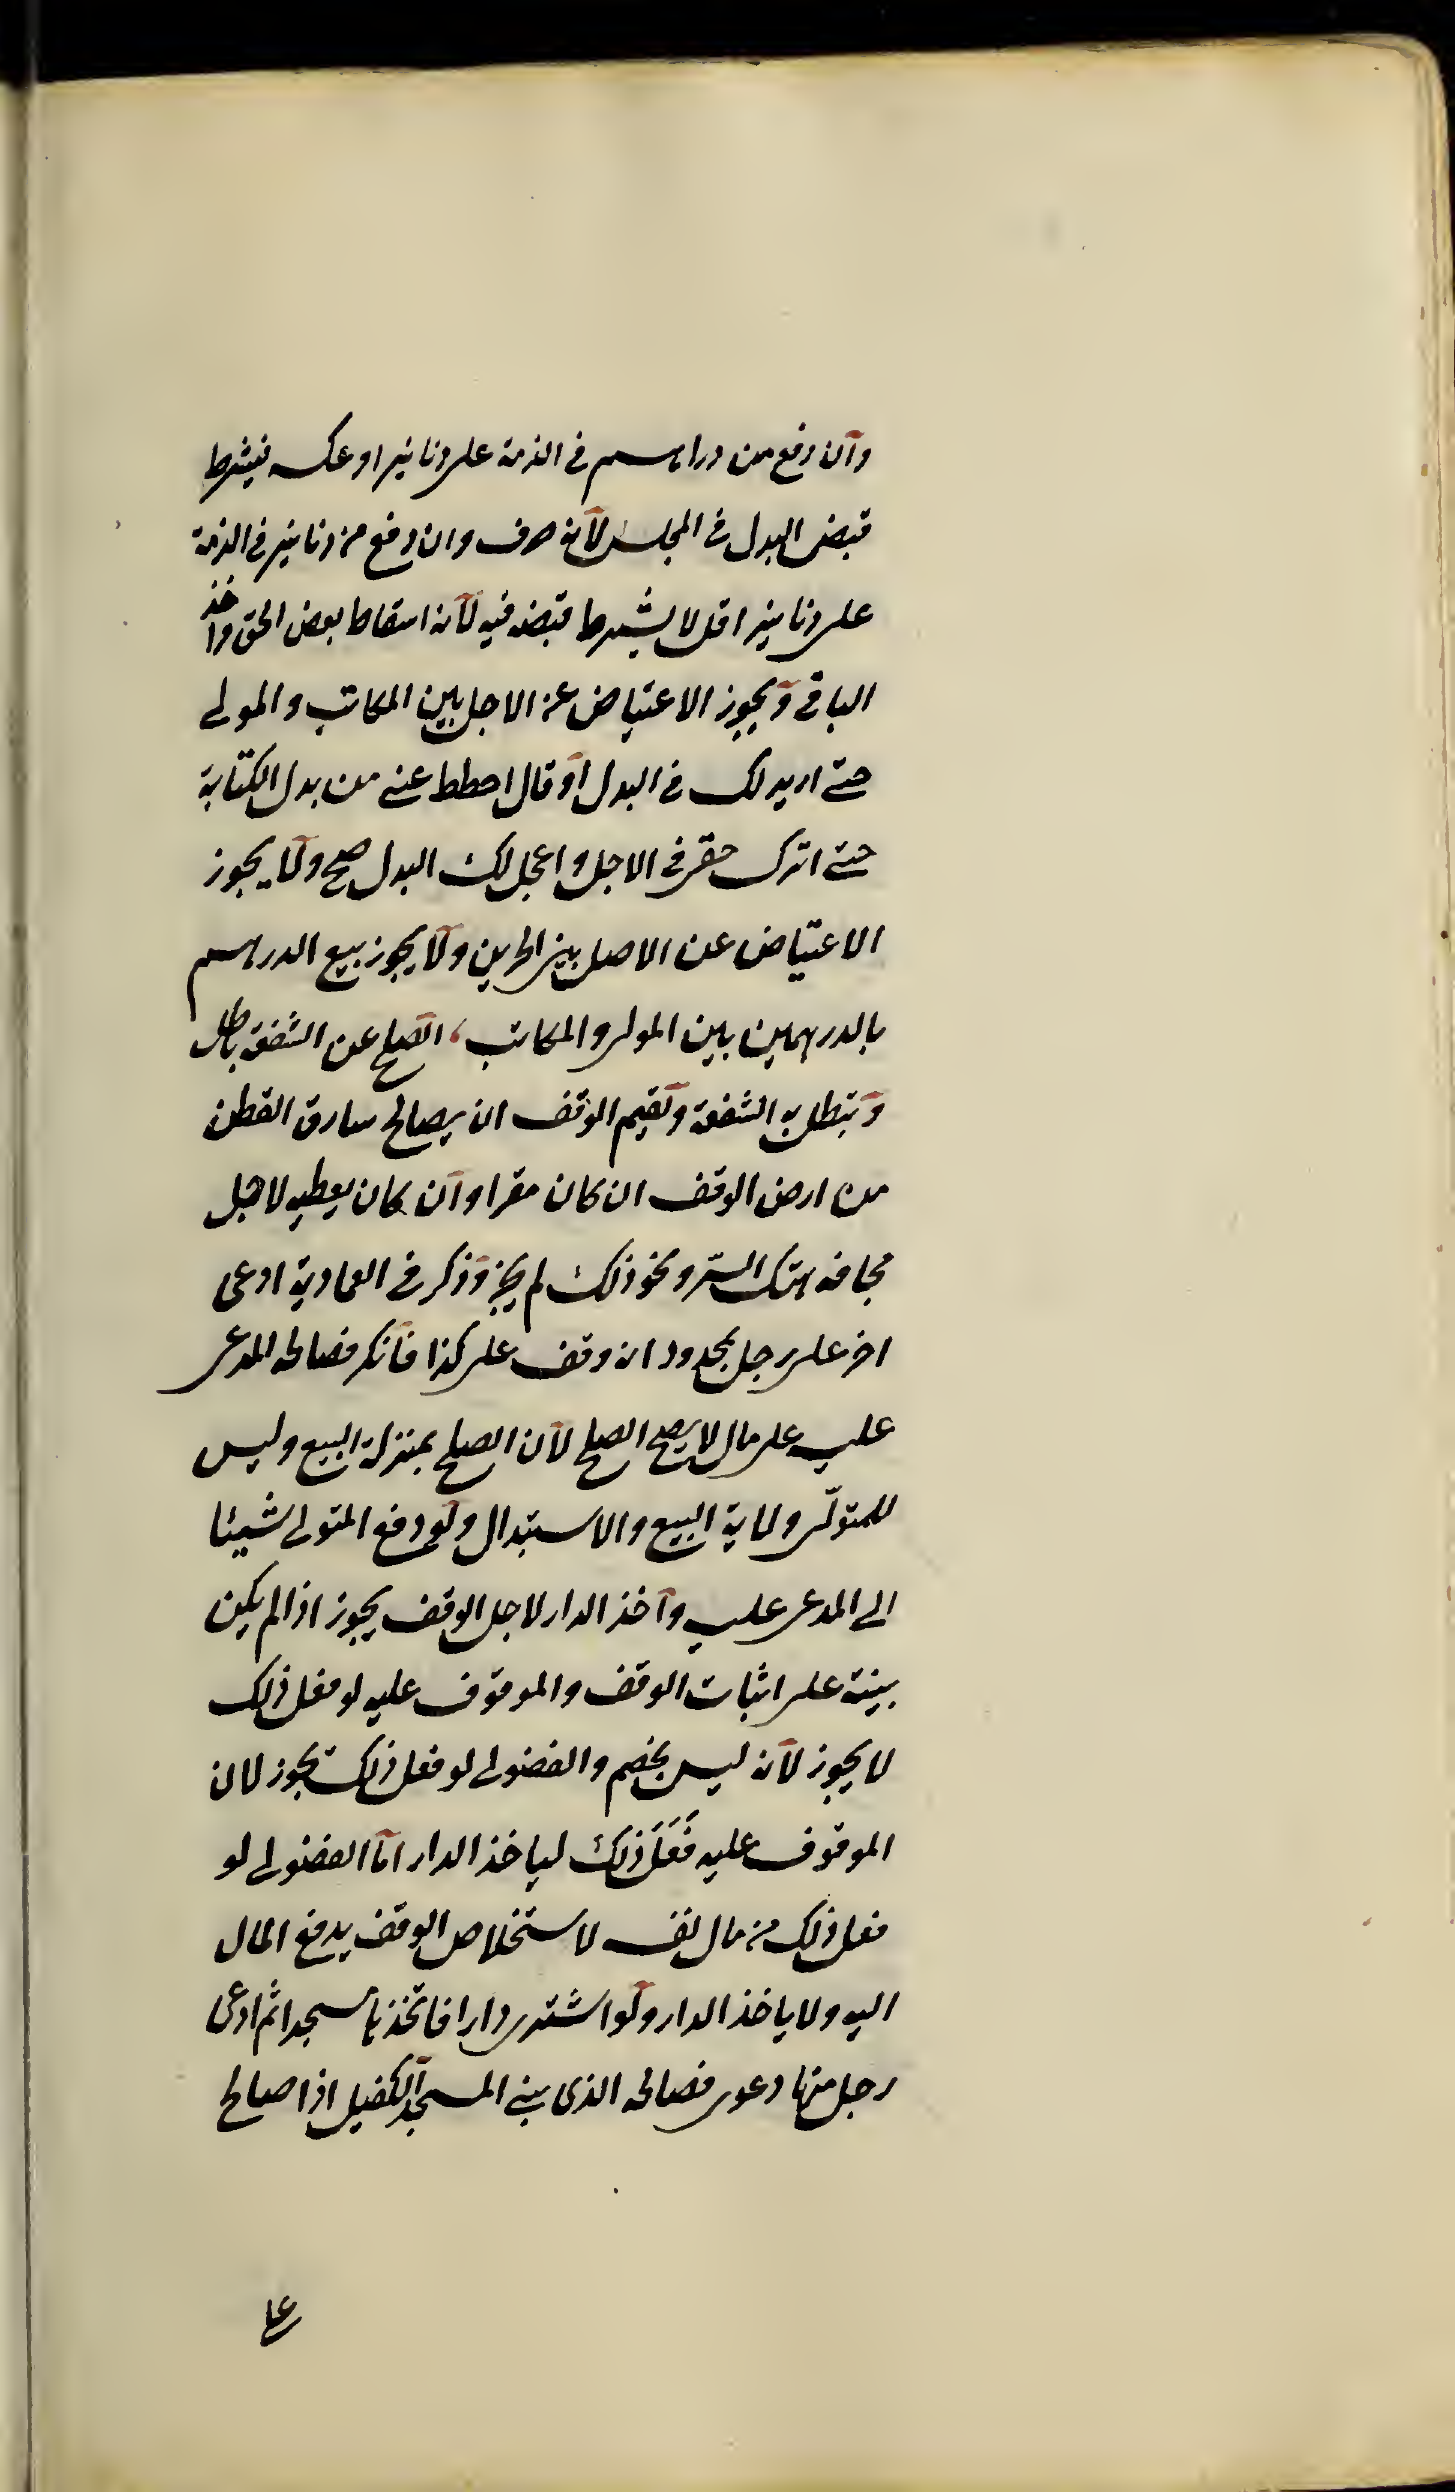 وان دفع من دراهم في الذمة على دنانير او عكسه فيشترط
قبض البدل في المجلس لانه صرف وان دفع من دنانير في الذمة
على دنانير اقل لا يشترط قبضه فيه لانه اسقاط بعض الحق واخذ
الباقي ويجوز الاعتياض عن الاجل بين المكاتب والمولى
حتى اريد لك في البدل او قال احطط عني من بدل الكتابة
حتى اترك حقي في الاجل واعجل لك البدل صح ولا يجوز
الاعتياض عن الاصل بين الحرين ولا يجوز بيع الدرهم
بالدرهمين بين المولى والمكاتب، الصلح عن الشفعة باطل
وتبطل به الشفعة ولقيم الوقف ان يصالح سارق القطن
من ارض الوقف ان كان مقرا وان كان يعطيه لاجل
مخافة هتك الستر ونحو ذلك لم يجز وذكر في العمادية ادعى
اخر على رجل بحدود انه وقف على كذا فانكر فصالحه المدعى
عليه على مال لا يصح الصلح لان الصلح بمنزلة البيع وليس
للمتولّى ولاية البيع والاستبدال ولو دفع المتولي شيئا
الى المدعى عليه واخذ الدار لاجل الوقف يجوز اذا لم يكن
بينة على اثبات الوقف والموقوف عليه لو فعل ذلك
لا يجوز لانه ليس بخصم والفضولي لو فعل ذلك يجوز لان
الموقوف عليه فَعَلَ ذلك لياخذ الدار امّا الفضولي لو
فعل ذلك من مال نفسه لاستخلاص الوقف يدفع المال
اليه ولا ياخذ الدار ولو اشترى دارا فاتخذها مسجدا ثم ادعى
رجل منها دعوى فصالحه الذى بنى المسجد الكفيل اذا صالح